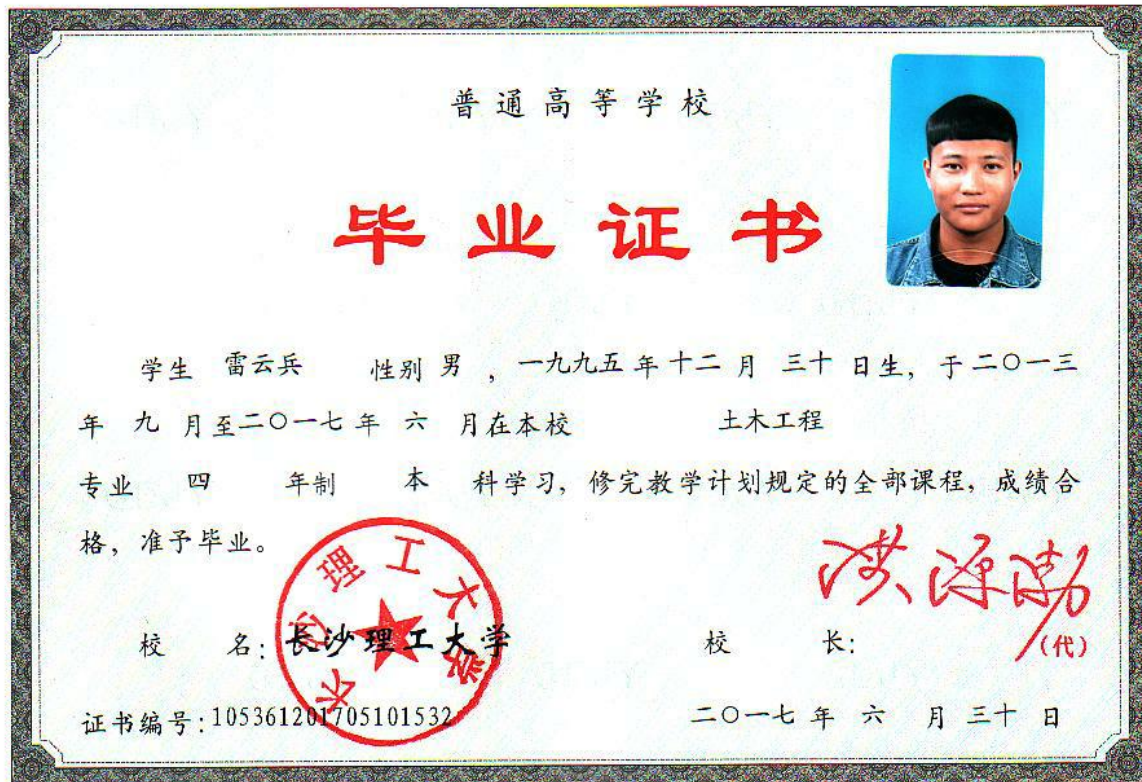 普通高等学校
毕业证书
学生 雷云兵 性别 男 ，一九九五 年 十二 月 三十 日生，于 二〇一三
年 九 月至 二〇一七 年 六 月在本校 土木工程
专业 四 年制 本 科学习，修完教学计划规定的全部课程，成绩合
格，准予毕业。
长沙理工大学
洪源渤
(代)
校 名：长沙理工大学 校 长：
证书编号：105361201705101532 二〇一七 年 六 月 三十 日